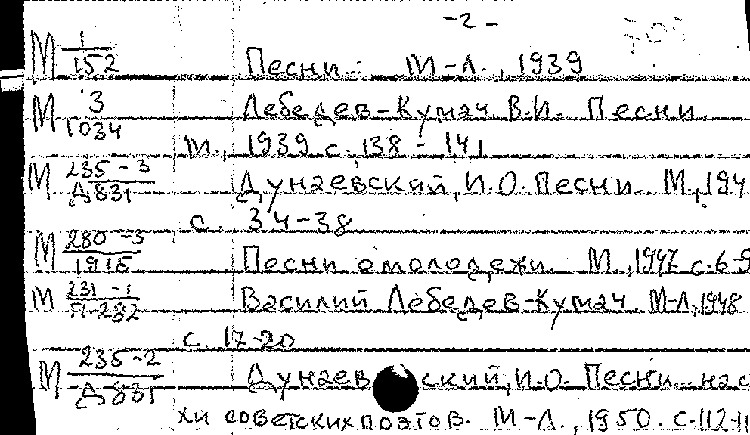 -2-
М 1/152 Песни. М-Л., 1939
М 3/1034 Лебедев-Кумач В.И. Песни.
М., 1939 с. 138-141
М 235-3/Д831 Дунаевский, И.О. Песни. М., 194
с. 34-38
М 280-3/1915 Песни о молодежи. М., 1947 с. 6-9
М 231-1/Л-282 Василий Лебедев-Кумач. М-Л, 1948
с. 17-20
М 235-2/Д831 Дунаевский, И.О. Песни на с
хи советских поэтов. М-Л., 1950. с. 112-11